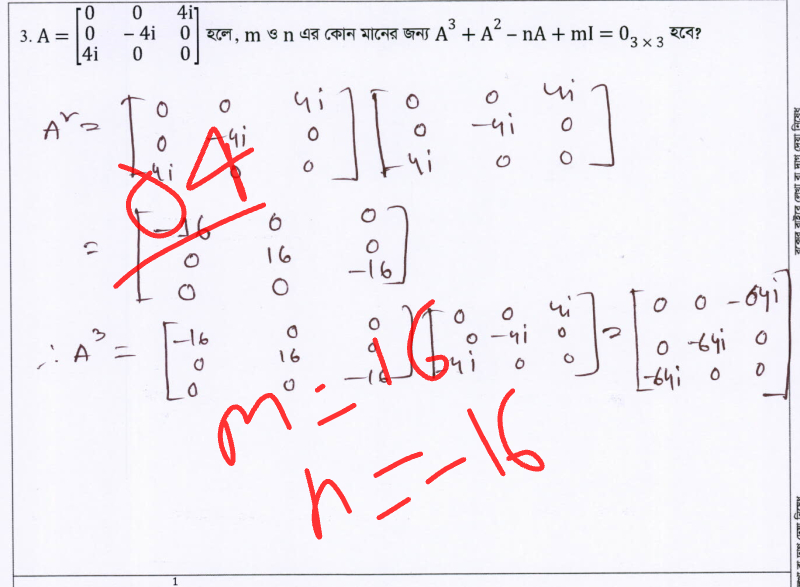 3. A = [0 0 4i; 0 - 4i 0; 4i 0 0] হলে, m ও n এর কোন মানের জন্য A³ + A² − nA + mI = 0₃ₓ₃ হবে?
A² = [0 0 4i; 0 -4i 0; 4i 0 0] [0 0 4i; 0 -4i 0; 4i 0 0]
04
= [-16 0 0; 0 16 0; 0 0 -16]
∴ A³ = [-16 0 0; 0 16 0; 0 0 -16] [0 0 4i; 0 -4i 0; 4i 0 0] = [0 0 -64i; 0 -64i 0; -64i 0 0]
m = 16
n = -16
1